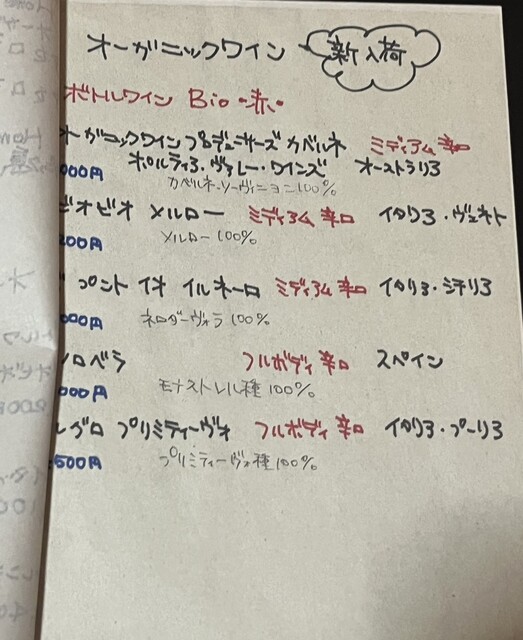 オーガニックワイン 新入荷
ボトルワイン Bio・赤・
オーガニックワインプロデューサーズ カベルネ ミディアム 辛口
ポルティア・ヴァレー・ワインズ オーストラリア
000円 カベルネ・ソーヴィニヨン100%
ビオビオ メルロー ミディアム 辛口 イタリア・ヴェネト
200円 メルロー100%
プント イオ イルネーロ ミディアム 辛口 イタリア・シチリア
000円 ネロダーヴォラ 100%
ソロベラ フルボディ 辛口 スペイン
000円 モナストレル種100%
レグロ プリミティーヴォ フルボディ 辛口 イタリア・プーリア
500円 プリミティーヴォ種100%